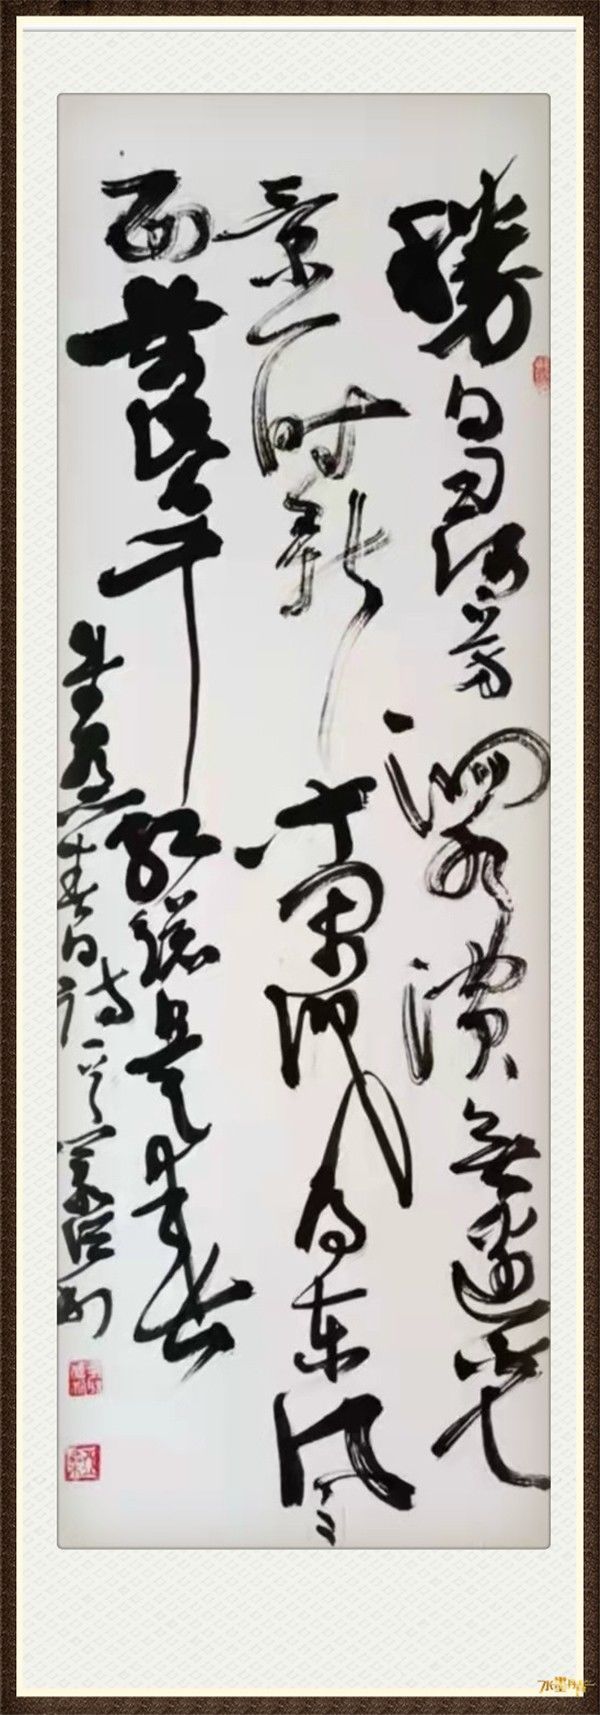 勝日尋芳泗水濱無邊光
景一時新等閒識得東風
面萬紫千紅總是春
朱熹春日詩一首
水墨丹青